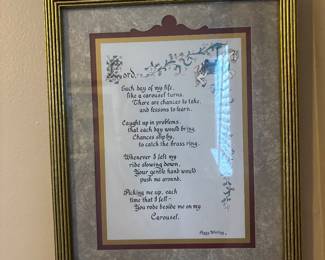 Lord,
Each day of my life,
like a carousel turns.
There are chances to take,
and lessons to learn.
Caught up in problems,
that each day would bring,
Chances slip by,
to catch the brass ring.
Whenever I felt my
ride slowing down,
Your gentle hand would
push me around.
Picking me up, each
time that I fell-
You rode beside me on my
Carousel.
Peggy